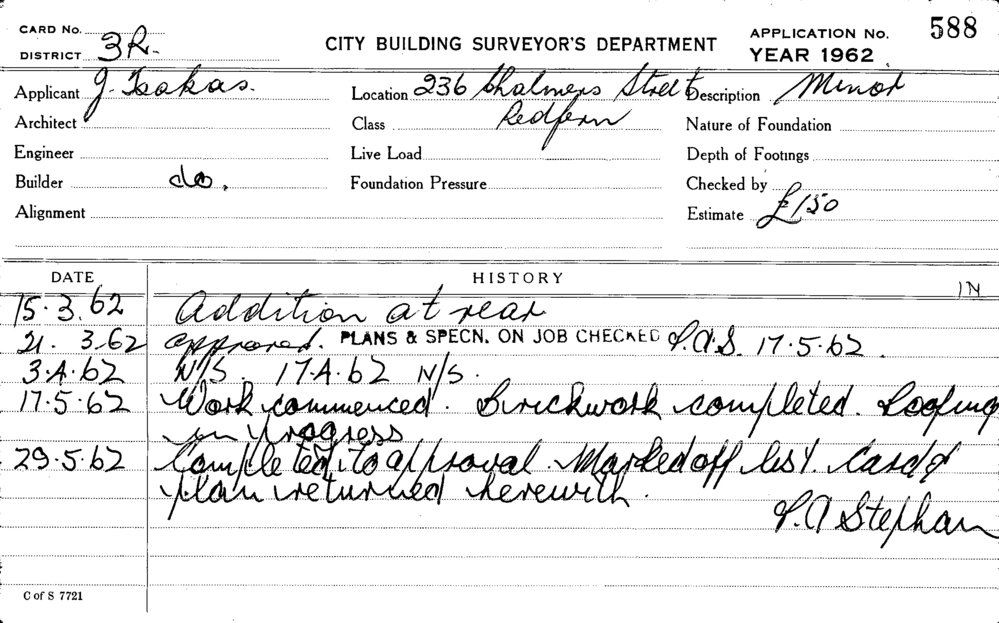 CARD No. CITY BUILDING SURVEYOR'S DEPARTMENT APPLICATION No. 588
DISTRICT 3R. YEAR 1962
Applicant J. Tsakas. Location 236 Chalmers Street Description Minor
Architect Class Redfern Nature of Foundation
Engineer Live Load Depth of Footings
Builder do. Foundation Pressure Checked by
Alignment Estimate £150
DATE HISTORY
IN
15.3.62 Addition at rear
21.3.62 approved. PLANS & SPECN. ON JOB CHECKED P.A.S. 17.5.62.
3.4.62 N/S. 17.4.62 N/S.
17.5.62 Work commenced. Brickwork completed. Roofing
in progress
29.5.62 Completed to approval. Marked off list. Card &
plan returned herewith.
P.A Stephan
C of S 7721